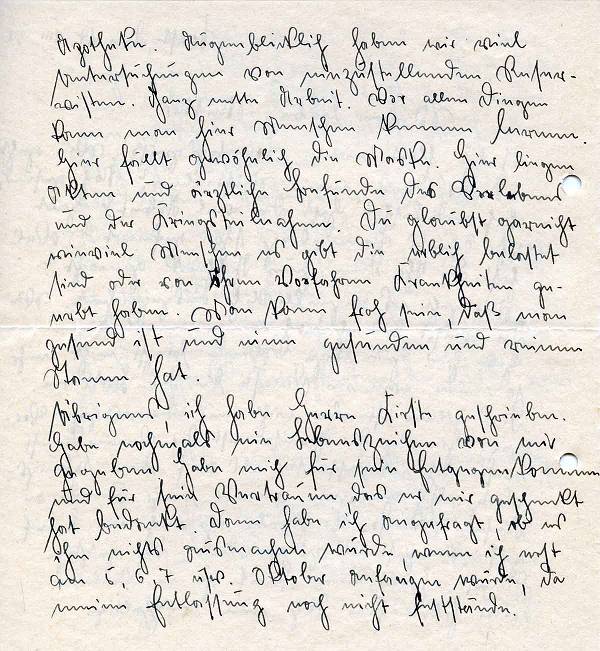 Apotheke. Augenblicklich haben wir viel
Untersuchungen von einzustellenden Reser-
visten. Ganz nette Arbeit. Vor allen Dingen
kann man hier Menschen kennen lernen.
Hier fällt gewöhnlich die Maske. Hier liegen
Akten und ärztliche Befunde des Vorlebens
und der Kriegsteilnahme. Du glaubst garnicht
wieviel Menschen es gibt die erblich belastet
sind oder von ihren Vorfahren Krankheiten ge-
erbt haben. Man kann froh sein, daß man
gesund ist und einen gesunden und reinen
Stamm hat.
Übrigens, ich habe Herrn Kirste geschrieben.
Habe nochmals ein Lebenszeichen von mir
gegeben. Habe mich für sein Entgegenkommen
und für sein Vertrauen das er mir geschenkt
hat bedankt. Dann habe ich angefragt, ob es
ihm nichts ausmachen würde, wenn ich erst
am 5, 6, 7 usw. Oktober anfangen würde, da
meine Entlassung noch nicht feststände.